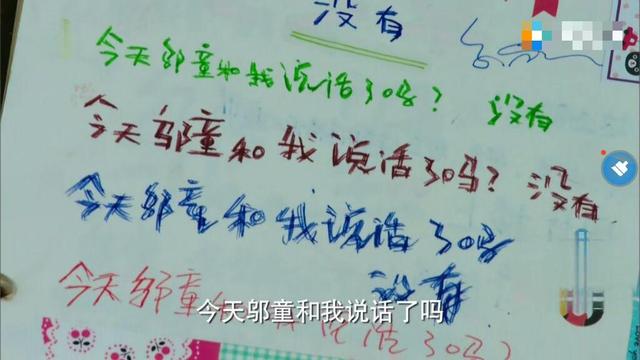 没有
今天邬童和我说话了吗? 没有
今天邬童和我说话了吗? 没有
今天邬童和我说话了吗
没有
今天邬童和我说话了吗?
今天邬童和我说话了吗